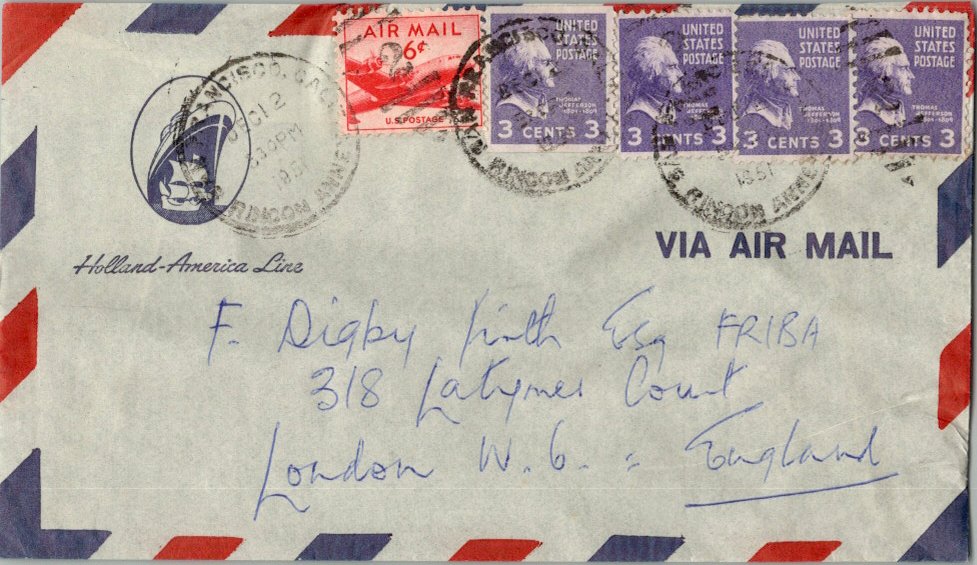 AIR MAIL
6¢
U.S. POSTAGE
UNITED
STATES
POSTAGE
THOMAS
JEFFERSON
1801-1809
3 CENTS 3
UNITED
STATES
POSTAGE
THOMAS
JEFFERSON
1801-1809
3 CENTS 3
UNITED
STATES
POSTAGE
THOMAS
JEFFERSON
1801-1809
3 CENTS 3
UNITED
STATES
POSTAGE
THOMAS
JEFFERSON
1801-1809
3 CENTS 3
SAN FRANCISCO, CALIF.
DEC 12
330 PM
1951
RINCON ANNEX
SAN FRANCISCO
RINCON ANNEX
1951
RINCON ANNEX
Holland-America Line
VIA AIR MAIL
F. Digby Firth Esq FRIBA
318 Latymer Court
London W. 6. : England